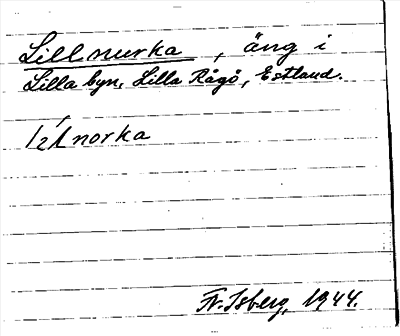 Lillnurka, äng i
Lilla byn, Lilla Rågö, Estland.
norka
Fr. Isberg, 1944.